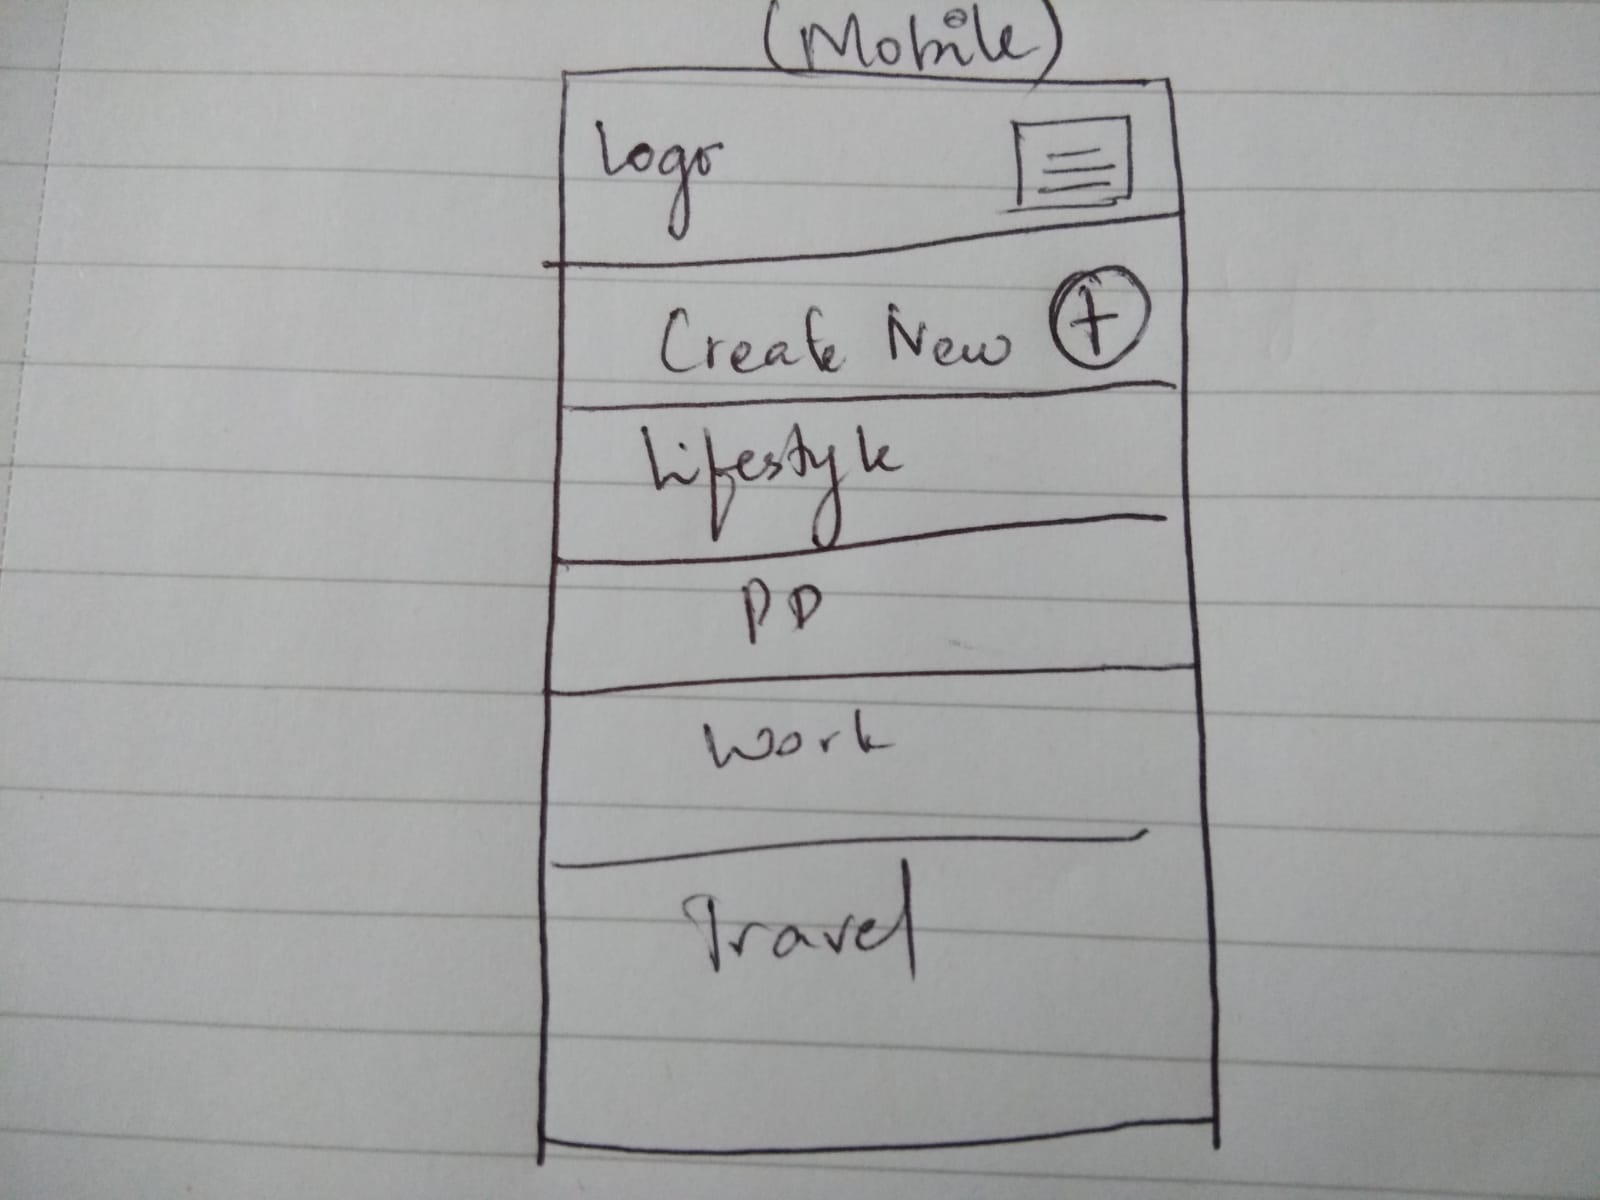 (Mobile)
Logo
Create New +
Lifestyle
PD
Work
Travel